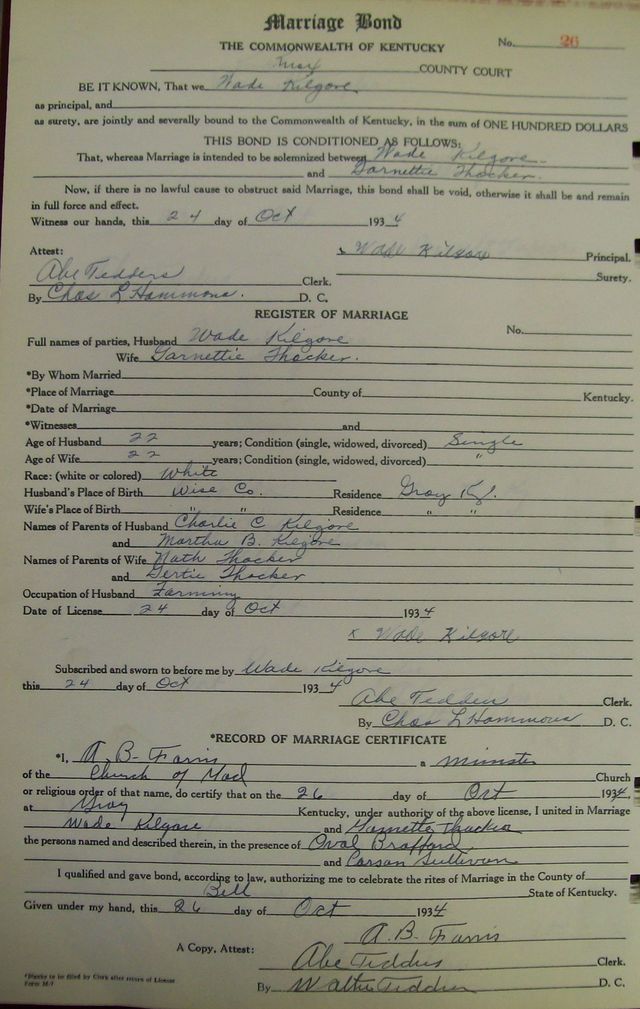 Marriage Bond
THE COMMONWEALTH OF KENTUCKY No. 26
COUNTY COURT
BE IT KNOWN, That we Wade Kilgore
as principal, and
as surety, are jointly and severally bound to the Commonwealth of Kentucky, in the sum of ONE HUNDRED DOLLARS
THIS BOND IS CONDITIONED AS FOLLOWS:
That, whereas Marriage is intended to be solemnized between Wade Kilgore
and Garnettie Thacker.
Now, if there is no lawful cause to obstruct said Marriage, this bond shall be void, otherwise it shall be and remain
in full force and effect.
Witness our hands, this 24 day of Oct 1934
Attest: x Wade Kilgore Principal.
Abe Tedders Clerk. Surety.
By Chas L Hammons. D. C.
REGISTER OF MARRIAGE
No.
Full names of parties, Husband Wade Kilgore
Wife Garnettie Thacker.
*By Whom Married
*Place of Marriage County of Kentucky.
*Date of Marriage
*Witnesses and
Age of Husband 22 years; Condition (single, widowed, divorced) Single
Age of Wife 22 years; Condition (single, widowed, divorced) "
Race: (white or colored) White
Husband's Place of Birth Wise Co. Residence Gray Ky.
Wife's Place of Birth " " Residence " "
Names of Parents of Husband Charlie C Kilgore
and Martha B. Kilgore
Names of Parents of Wife Nath Thacker
and Gertie Thacker
Occupation of Husband Farming
Date of License 24 day of Oct 1934
x Wade Kilgore
Subscribed and sworn to before me by Wade Kilgore
this 24 day of Oct 1934
Abe Tedders Clerk.
By Chas L Hammons D. C.
*RECORD OF MARRIAGE CERTIFICATE
*I, A. B. Farris a minister
of the Church of God Church
or religious order of that name, do certify that on the 26 day of Oct 1934
at Gray Kentucky, under authority of the above license, I united in Marriage
Wade Kilgore and Garnettie Thacker
the persons named and described therein, in the presence of Oval Brafford
and Carson Sullivan
I qualified and gave bond, according to law, authorizing me to celebrate the rites of Marriage in the County of
Bell State of Kentucky.
Given under my hand, this 26 day of Oct 1934
A. B. Farris
A Copy, Attest: Abe Tedders Clerk.
By Walter Tedders D. C.
*Blanks to be filled by Clerk after return of License
Form M-7